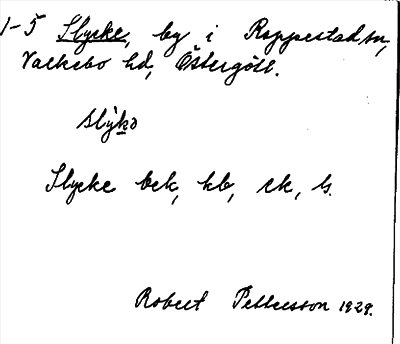 1-5 Slycke, by i Rappestad sn,
Valkebo hd, Östergötl.
slỳkə
Slycke bek, hb, ek, ls.
Robert Pettersson 1929.